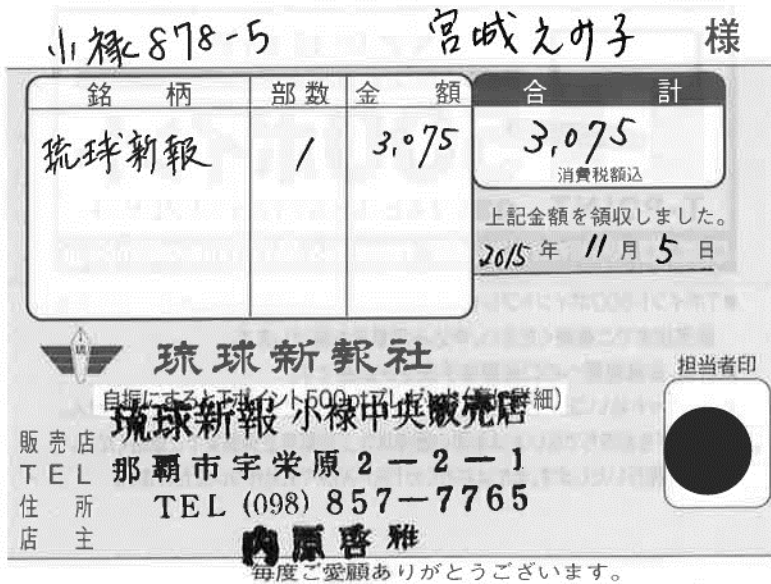 小禄878-5 宮城えみ子 様
銘柄 部数 金額 合計
琉球新報 1 3,075 3,075
消費税額込
上記金額を領収しました。
2015年11月5日
琉
琉球新報社
担当者印
自振にするとTポイント500ptプレゼント(裏に詳細)
琉球新報 小禄中央販売店
販売店
TEL 那覇市字栄原2-2-1
住所 TEL (098) 857-7765
店主 内原啓雅
毎度ご愛顧ありがとうございます。